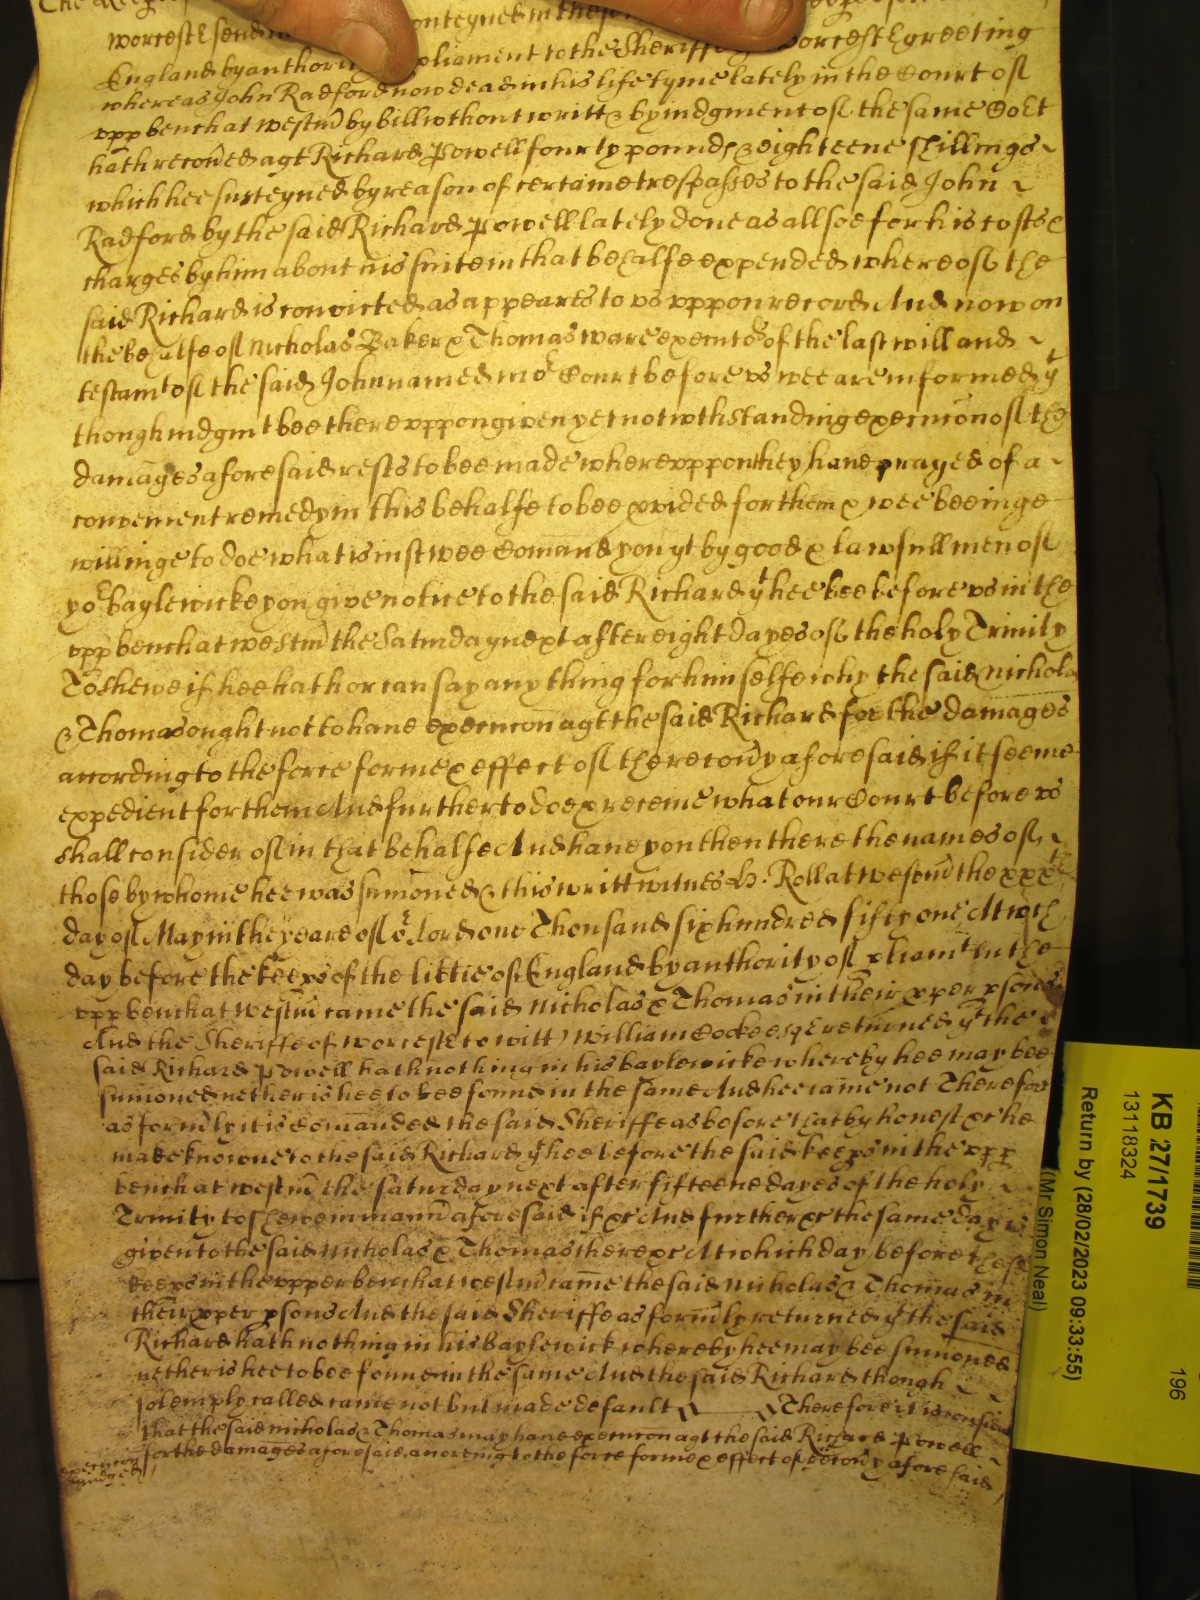 The Keep
worcestr send onteyned in the
England by authori pliament to the Sheriffe worcestr greeting
whereas John Radford now dead in his life tyme lately in the Court of
upp bench at westm by bill without writt & by iudgment of the same Cort
hath recoued agt Richard Powell fourty pounds & eighteene shillings
which hee susteyned by reason of certaine trespasses to the said John
Radford by the said Richard Powell lately done as allsoe for his costs &
charges by him about his suite in that behalfe expended whereof the
said Richard is convicted as appeares to us uppon record And now on
the behalfe of Nicholas Baker & Thomas ware executors of the last will and
testamt of the said John named in or Court before us wee are informed yt
though iudgmt bee thereuppon given yet notwthstanding execucon of the
damages aforesaid rests to bee made whereuppon they haue prayed of a
convenient remedy in this behalfe to bee pvided for them & wee beeinge
willinge to doe what is iust wee Comand you yt by good & lawfull men of
yor baylewicke you give notice to the said Richard yt hee bee before us in the
upp bench at westm the Saturday next after eight dayes of the holy Trinity
To shewe if hee hath or can say any thing for himselfe why the said Nichola
& Thomas ought not to haue execucon agt the said Richard for the damages
according to the force forme & effect of the recouy aforesaid if it seeme
expedient for them And further to doe & receiue what our Court before us
shall consider of in that behalfe And haue you then there the names of
those by whome hee was sumoned & this writt witnes H. Roll at westm the xxxth
day of May in the yeare of or Lord one Thousand six hundred fifty one At wch
day before the keeps of the libtie of England by authority of pliamt In the
upp bench at westm came the said Nicholas & Thomas in their pper psons
And the Sheriffe of worcestr to witt William Cookes esqr returned yt the
said Richard Powell hath nothing in his baylewicke whereby hee may bee
sumoned nether is hee to bee found in the same And hee came not Therefor
as formly it is Comanded the said Sheriffe as before that by honest &c he
make knowne to the said Richard yt hee before the said keeps in the upp
bench at westm the saturday next after fifteene dayes of the holy
Trinity to shewe in mann aforesaid if &c And further &c the same day is
given to the said Nicholas & Thomas there &c At which day before these
keeps in the upper bench at westm came the said Nicholas & Thomas in
their pper psons And the said Sheriffe as formly returned yt the said
Richard hath nothing in his Baylewick whereby hee may bee sumoned
nether is hee to bee founde in the same And the said Richard though
solemply called came not but made default Therefore it is consider
that the said Nicholas & Thomas may haue execucon agt the said Richard Powell
for the damages aforesaid according to the force forme & effect of recouy aforesaid
execucon
iudged
KB 27/1739
13118324
Return by (28/02/2023 09:33:55)
(Mr Simon Neal)
196